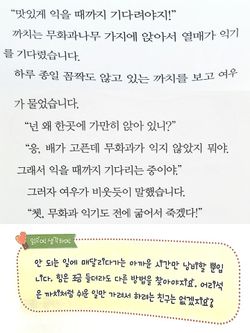 "맛있게 익을 때까지 기다려야지!"
까치는 무화과나무 가지에 앉아서 열매가 익기
를 기다렸습니다.
하루 종일 꼼짝도 않고 있는 까치를 보고 여우
가 물었습니다.
"넌 왜 한곳에 가만히 앉아 있니?"
"응, 배가 고픈데 무화과가 익지 않았지 뭐야.
그래서 익을 때까지 기다리는 중이야."
그러자 여우가 비웃듯이 말했습니다.
"쳇, 무화과 익기도 전에 굶어서 죽겠다!"
생각하기
안 되는 일에 매달리다가는 아까운 시간만 낭비할 뿐입
니다. 힘은 조금 들더라도 다른 방법을 찾아야지요. 어리석
은 까치처럼 쉬운 일만 가려서 하려는 친구는 없겠지요?